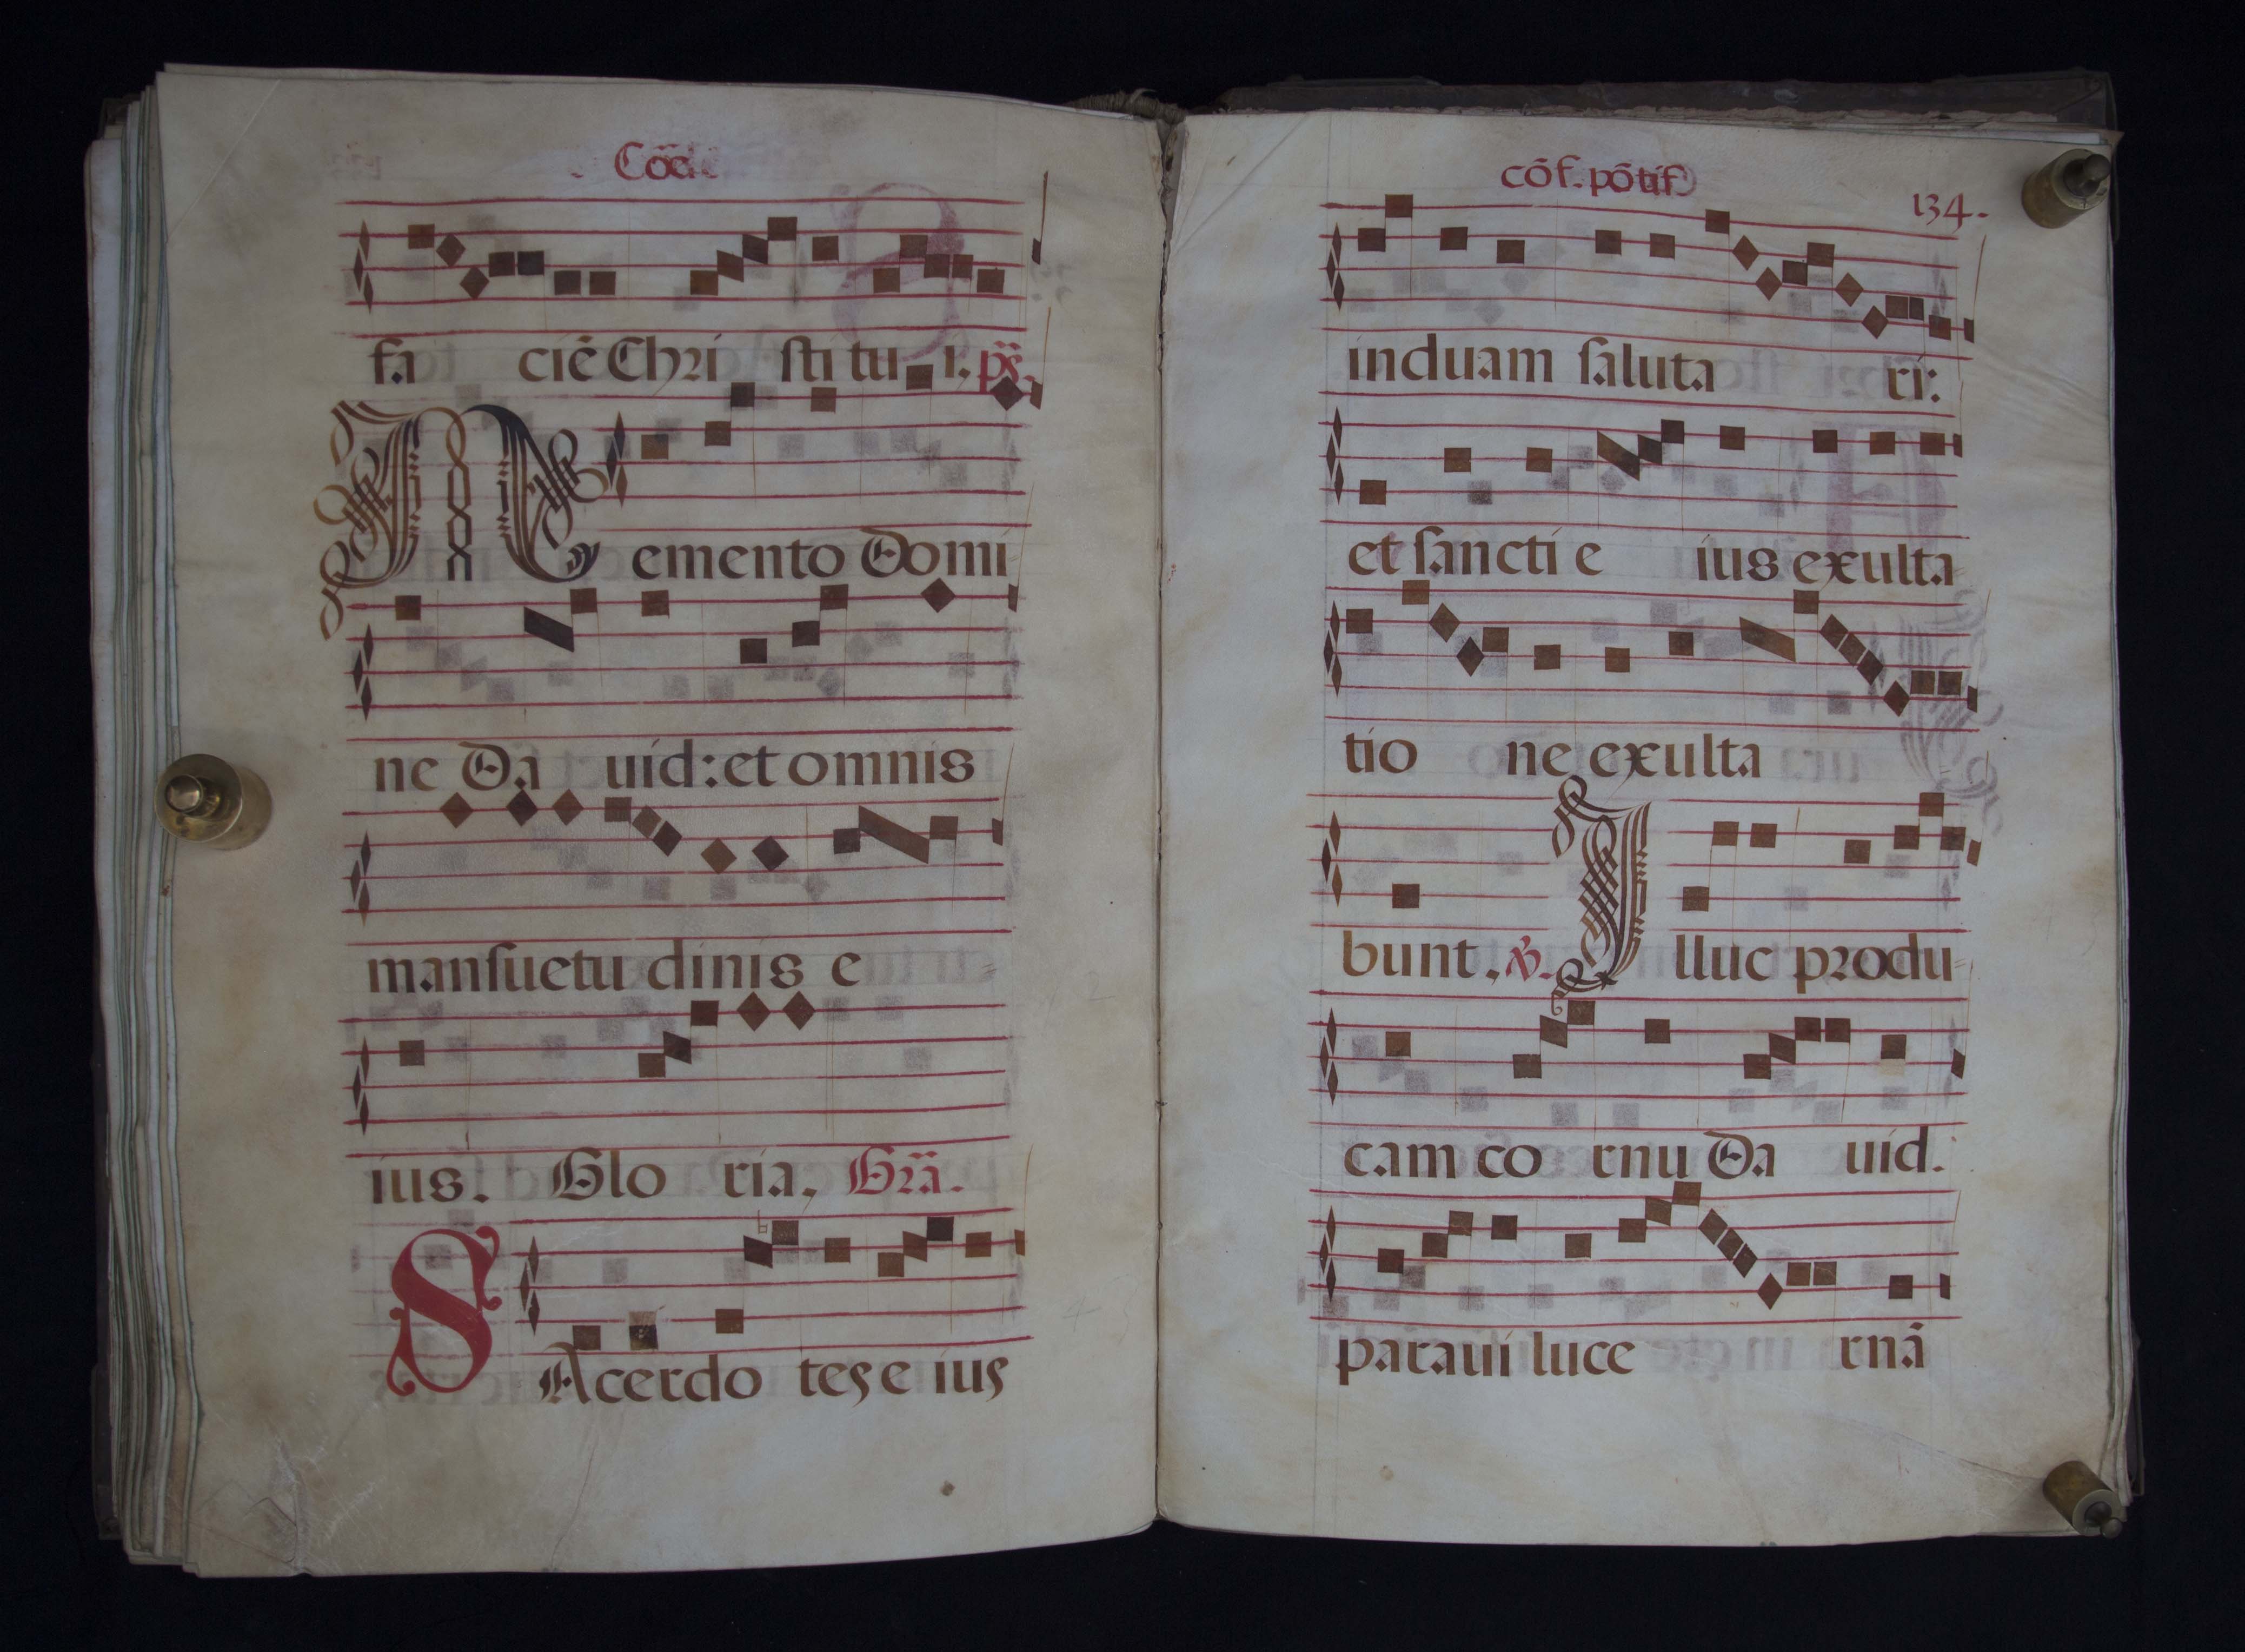 Cōē
fa ciē Chri sti tu i. ps̄.
Memento Domi
ne Da uid: et omnis
mansuetu dinis e
ius. Glo ria. Grã.
SAcerdo tes e ius
cōf. pōtif
134.
induam saluta ri:
et sancti e ius exulta
tio ne exulta
bunt. ℣. Illuc produ
cam co rnu Da uid.
paraui luce rnā